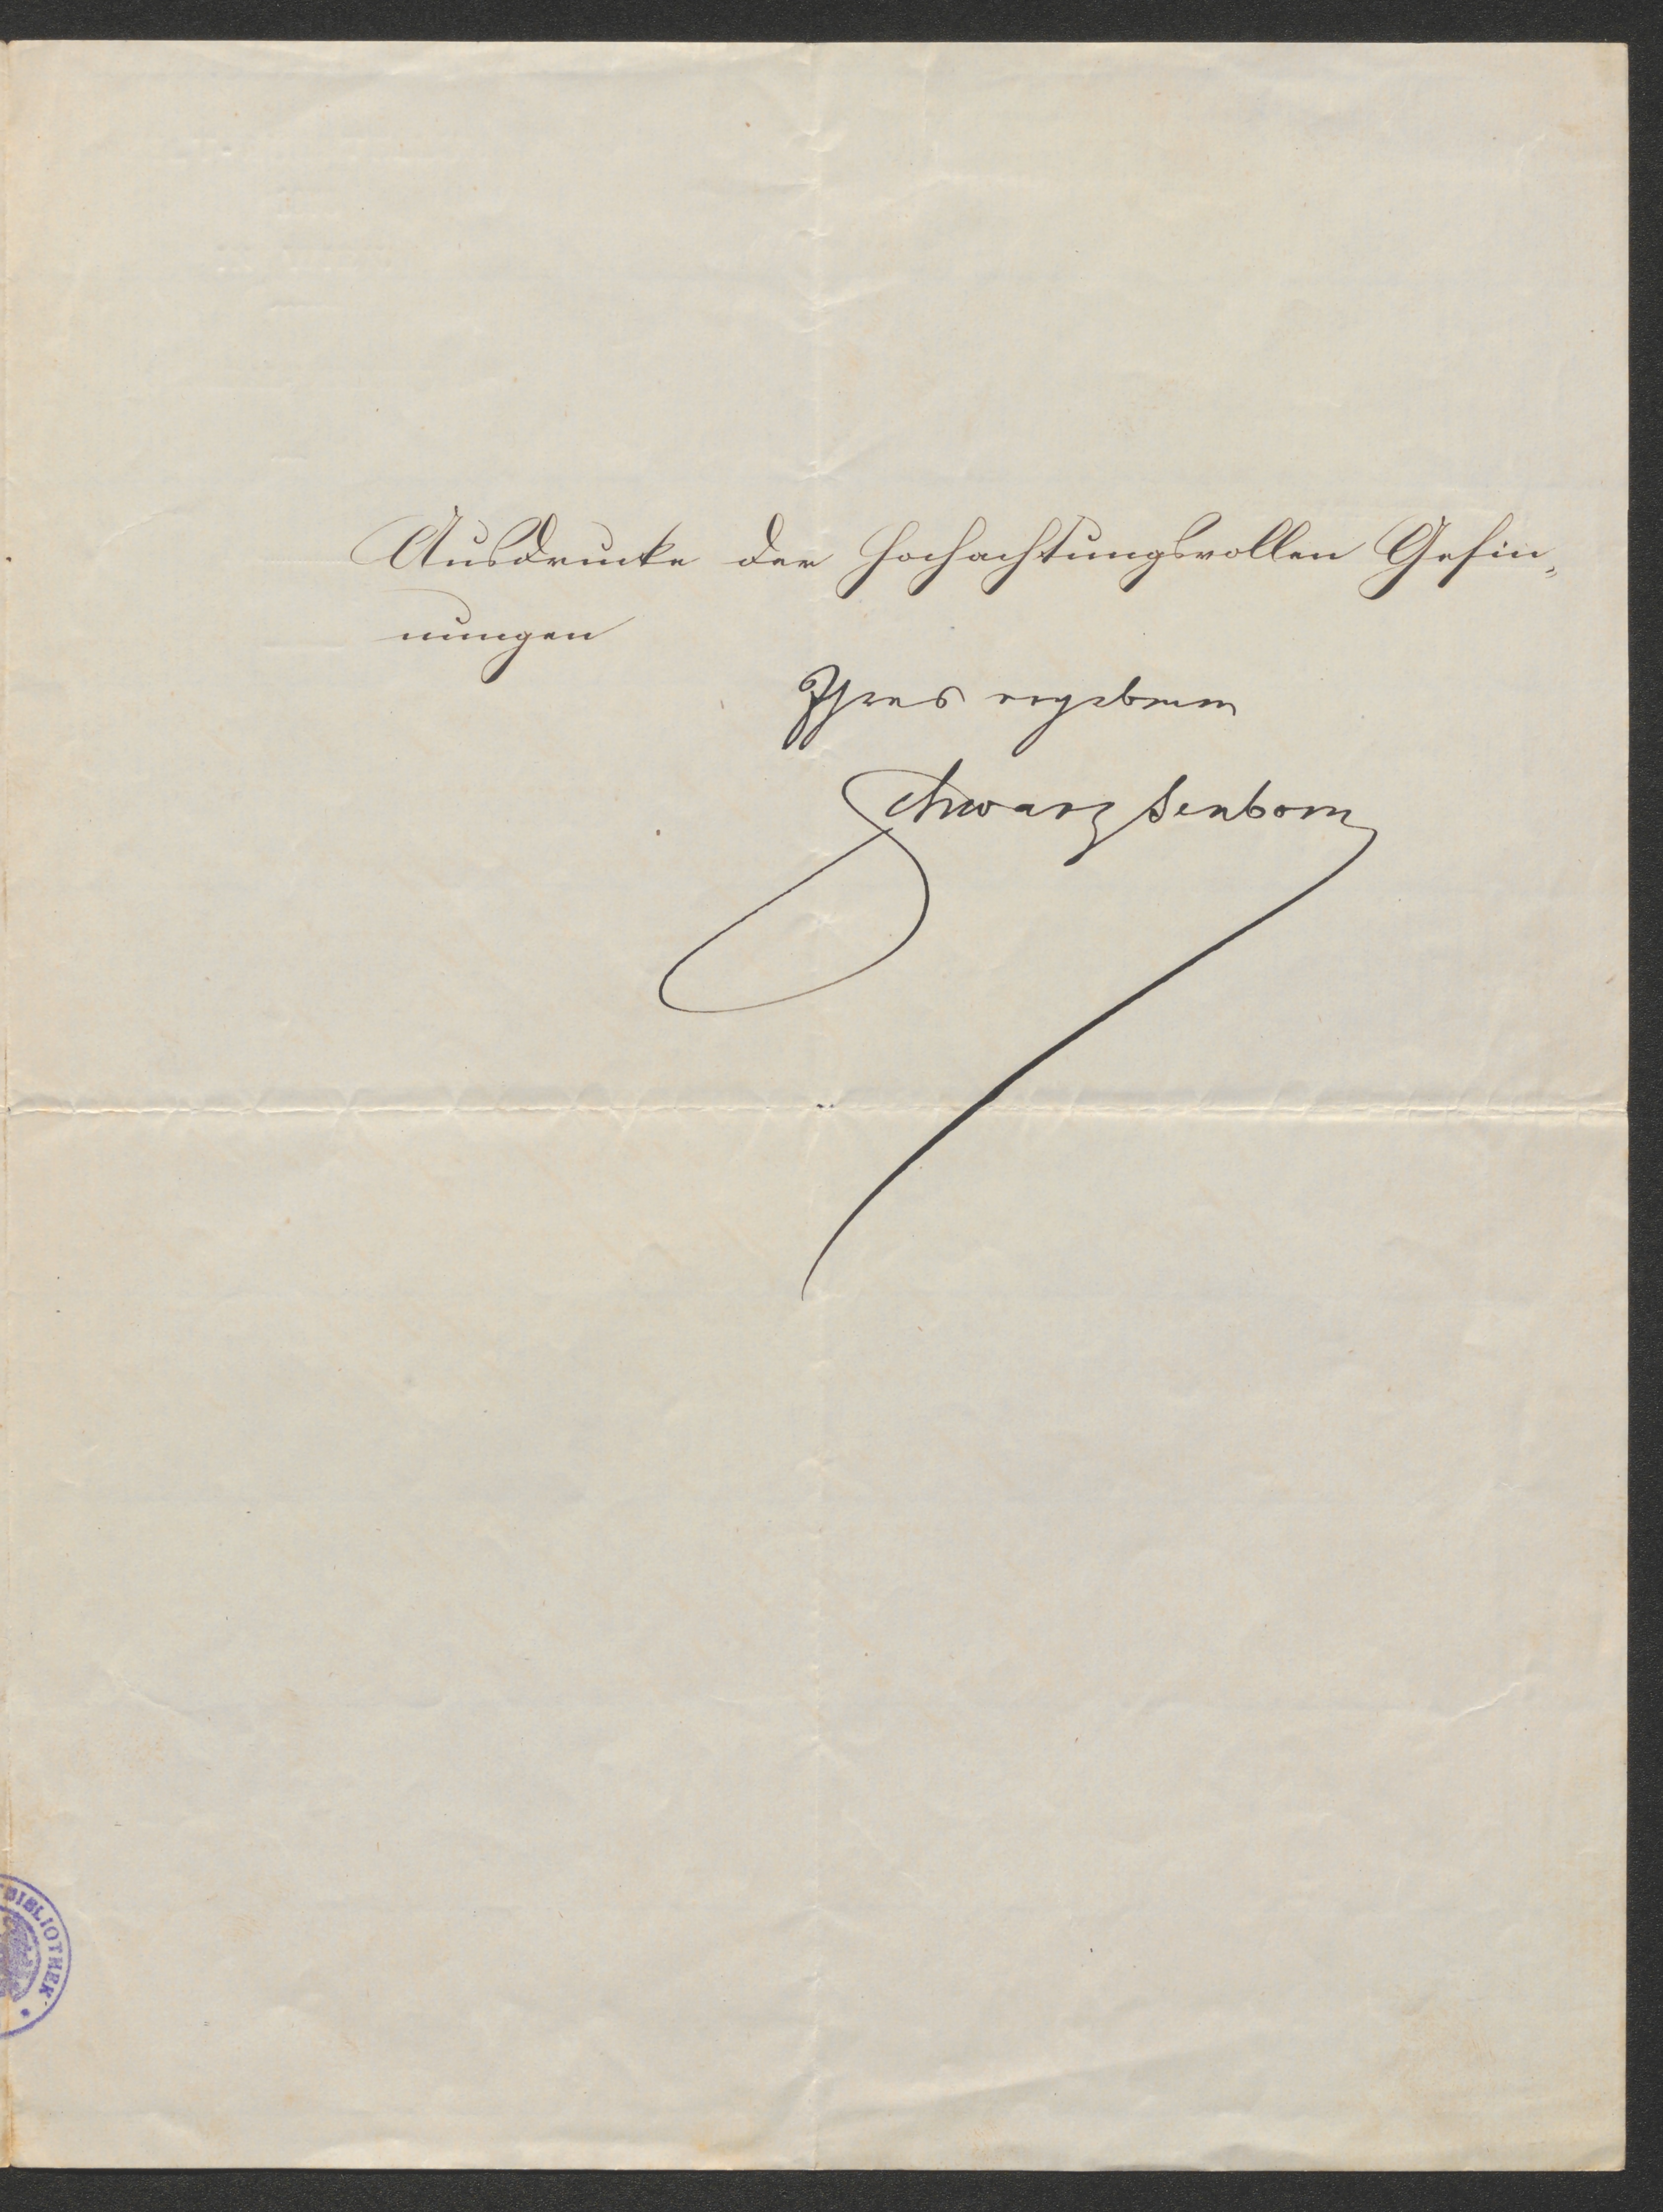 Ausdrucke der hochachtungsvollen Gesin„
nungen
Ihres ergebenen
Schwarz Senborn
BIBLIOTHEK